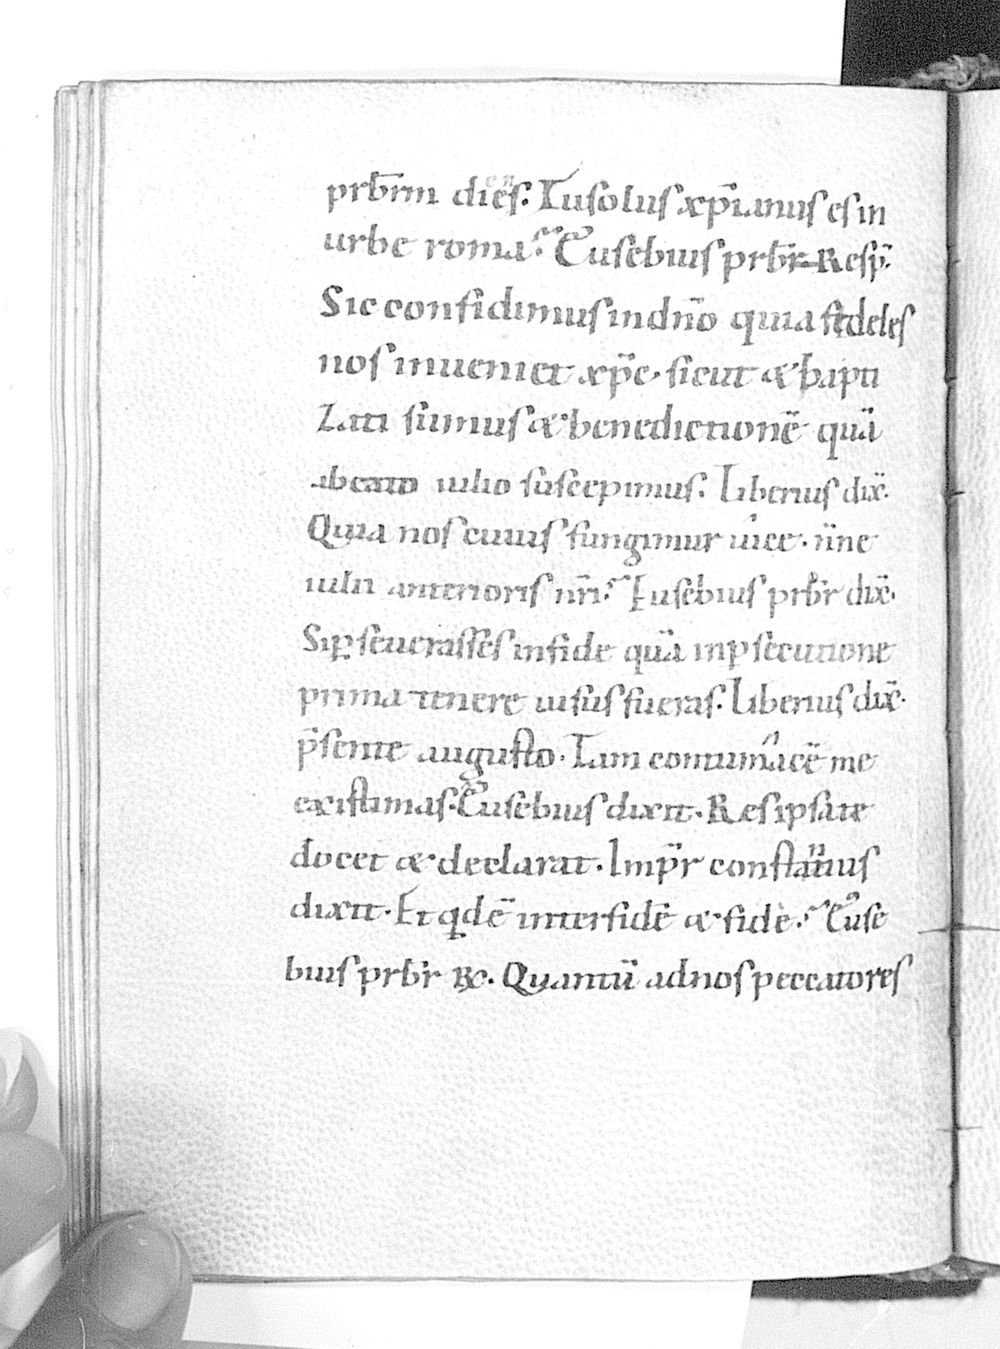 prb̄rm dic̄es. Tu solus xp̄ianus es in
urbe roma? Eusebius prb̄r Resp̄.
Sic confidimus in dn̄o quia fideles
nos inueniet xp̄c. sicut & bapti
zati sumus & benedictionē quā
abeato iulio suscepimus. Liberius dix̄.
Quia nos cuius fungimur uice. n̄ne
iulii anterioris nr̄i? Eusebius prb̄r dix̄.
Si ꝑseuerasses in fide quā in ꝑsecutione
prima tenere uisus fueras. Liberius dix̄.
p̄sente augusto. Tam contumacē me
existimas. Eusebius dixit. Res ipsa te
docet & declarat. Imp̄r constantius
dixit. Et qͥd ē inter fidē & fidē? Euse
bius prb̄r R̸c. Quantū ad nos peccatores